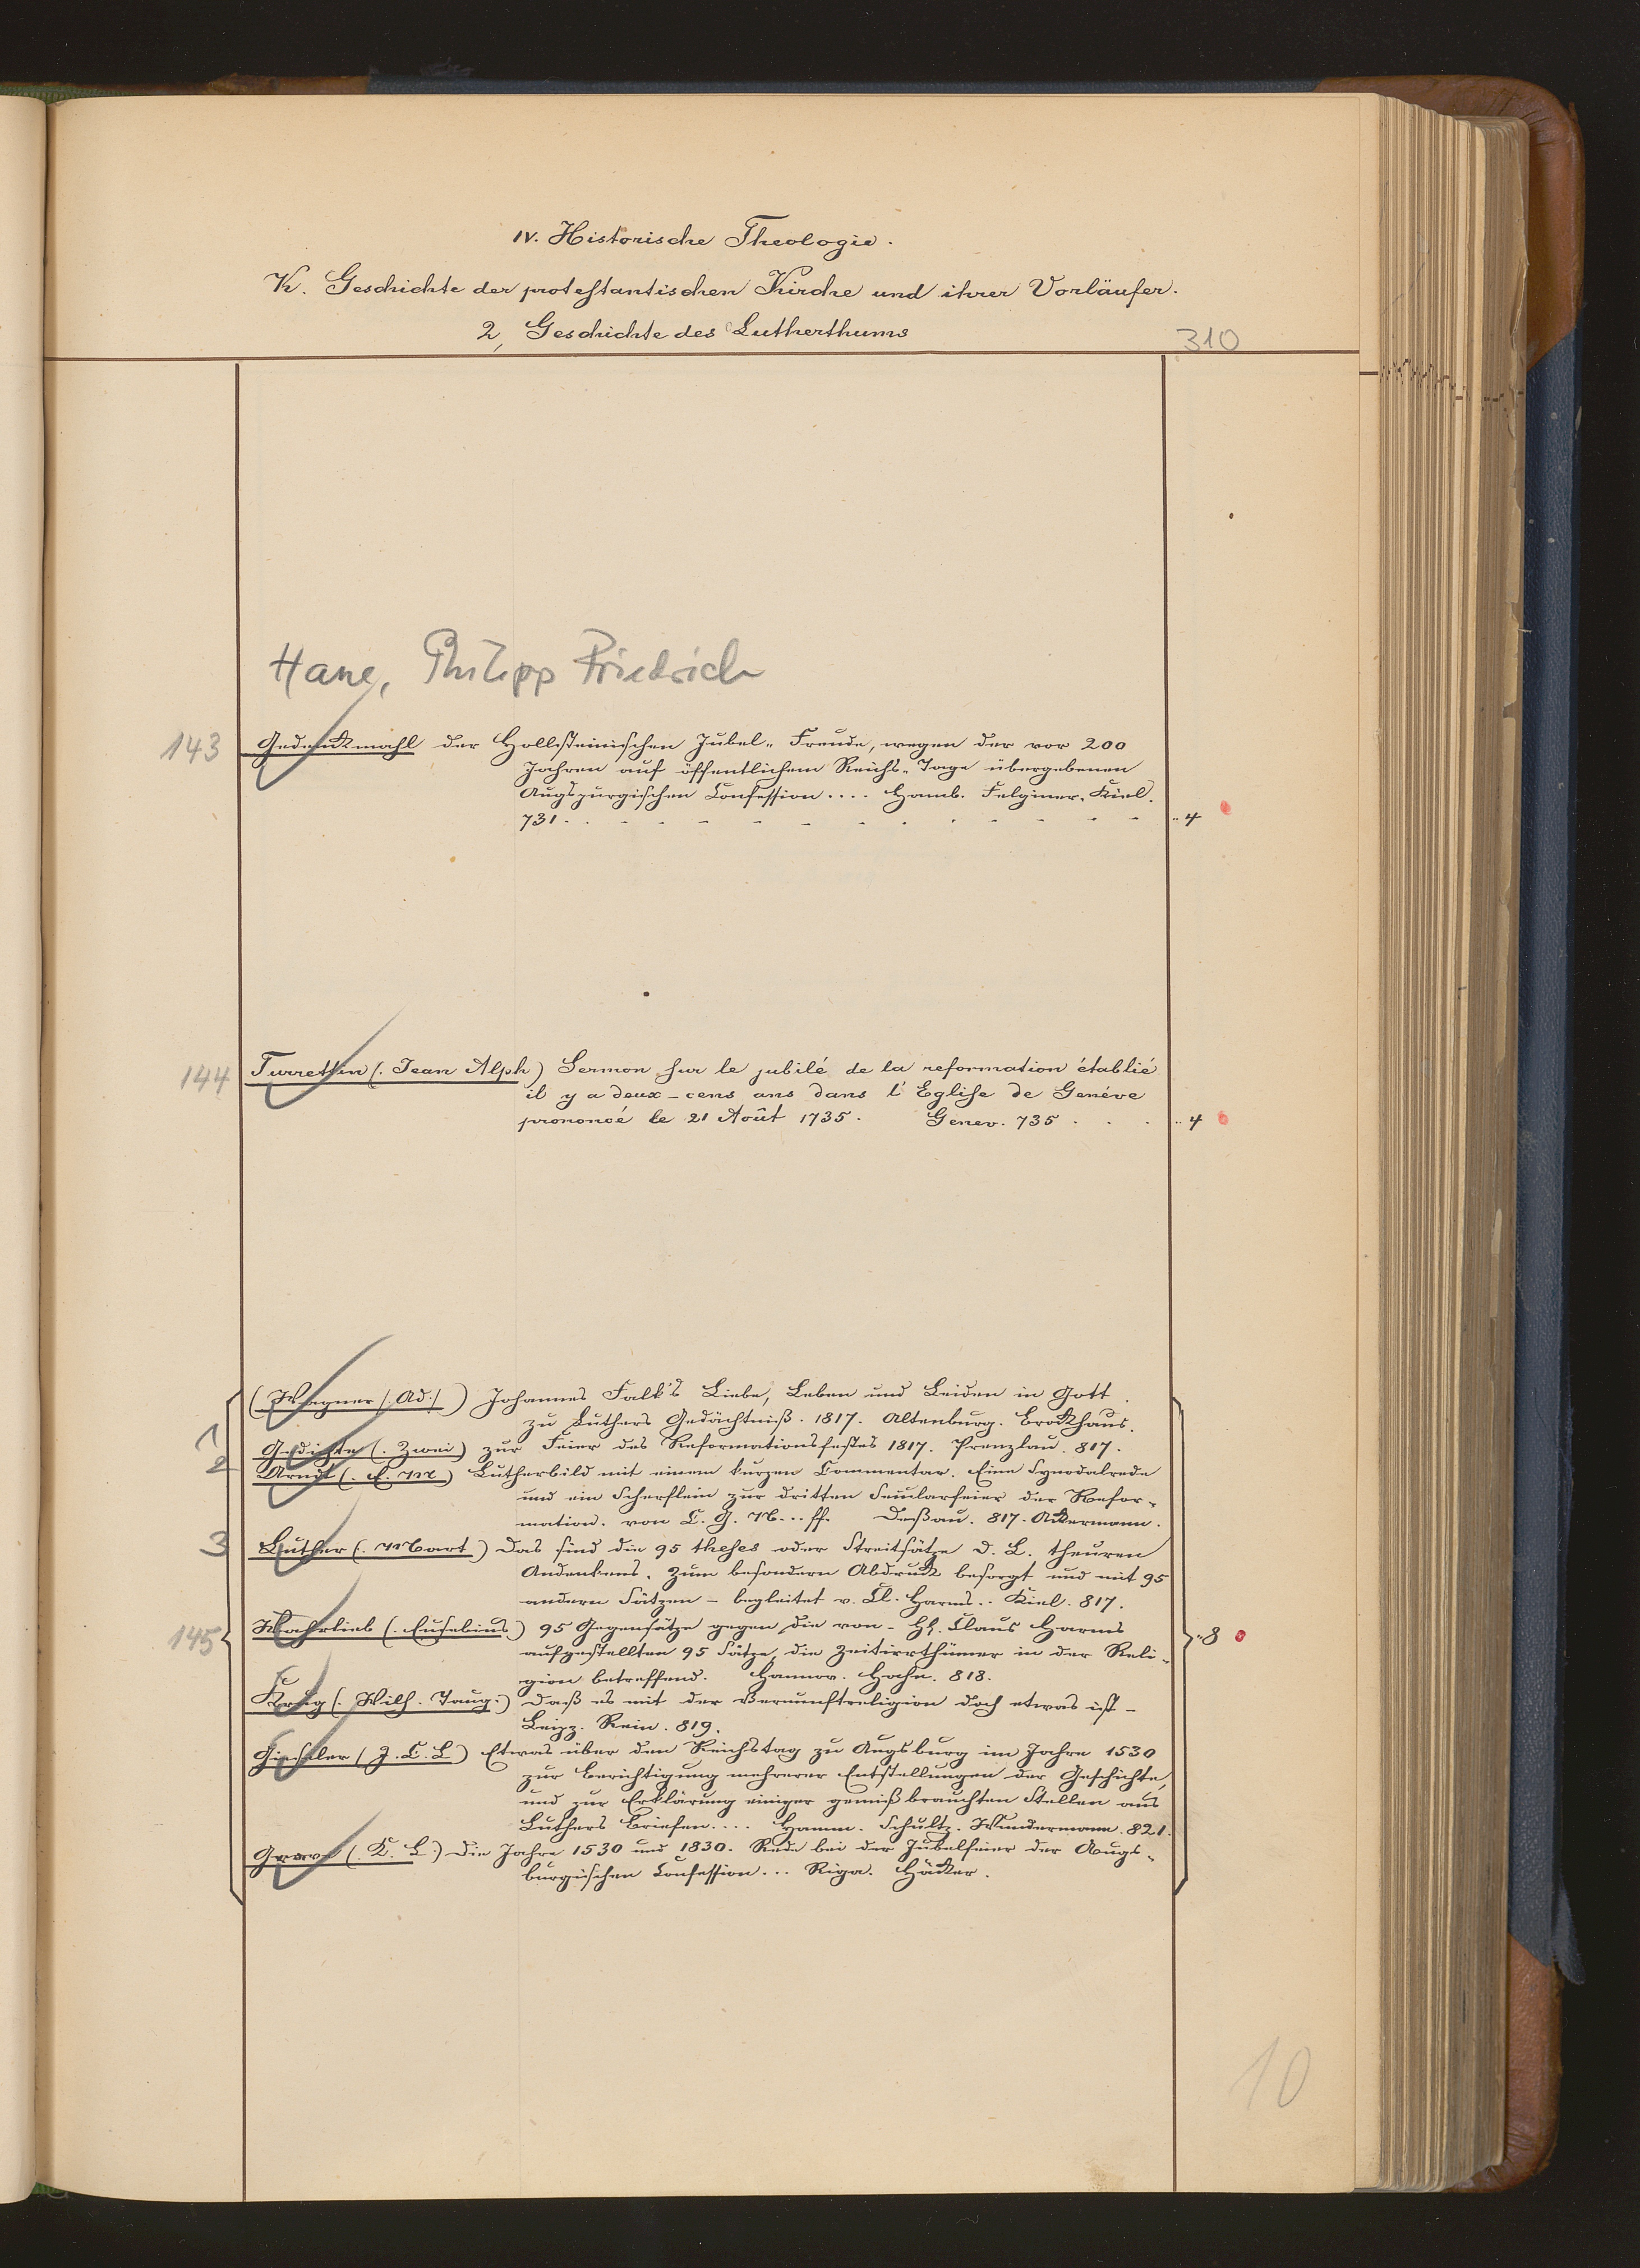 IV. Historische Theologie.
K. Geschichte der protestantischen Kirche und ihrer Vorläufer.
2, Geschichte des Lutherthums
310
Hane, Philipp Friedrich
143 Gedenkmahl der Hollsteinischen Jubel-Freude, wegen der vor 200
Jahren auf öffentlichem Reichs-Tage übergebenen
Augspurgischen Confession.... Hamb. Felginer. Kiel.
731. .. 4
144 Turrettin (. Jean Alph) Sermon sur le jubilé de la reformation établié
il y a deux-cens ans dans l'Eglise de Genéve
prononcé le 21 Août 1735. Genev. 735 . . . .. 4
(Wagner /. Ad./) Johannes Falk's Liebe, Leben und Leiden in Gott
zu Luthers Gedächtniß. 1817. Altenburg. Brockhaus.
1 Gedichte (. Zwei) zur Feier des Reformationsfestes 1817. Prenzlau. 817.
2 Arndt (. E. M) Lutherbild mit einem kurzen Commentar. Eine Synodalrede
und ein Scherflein zur dritten Secularfeier der Refor-
mation. von C. G. N...ff. Deßau. 817. Ackermann.
3 Luther (. Mart.) Das sind die 95 theses oder Streitsätze D. L. theuren
Andenkens. Zum besondern Abdruck besorgt und mit 95
andern Sätzen - begleitet v. Cl. Harms.. Kiel. 817.
145 Wahrlieb (. Eusebius.) 95 Gegensätze gegen die von - H. Claus Harms
aufgestellten 95 Sätze, die Zeitirrthümer in der Reli-
gion betreffend. Hannov. Hahn. 818. .. 8
Krug (. Wilh. Traug.) Daß es mit der Vernunftreligion doch etwas ist -
Leipz. Rein. 819.
Gieseler (J. C. L) Etwas über den Reichstag zu Augsburg im Jahre 1530
zur Berichtigung mehrerer Entstellungen der Geschichte,
und zur Erklärung einiger gemißbrauchten Stellen aus
Luthers Briefen.... Hamm. Schultz. Wundermann. 821.
Grave (. K. L.) Die Jahre 1530 und 1830. Rede bei der Jubelfeier der Augs-
burgischen Confession... Riga. Häcker.
10